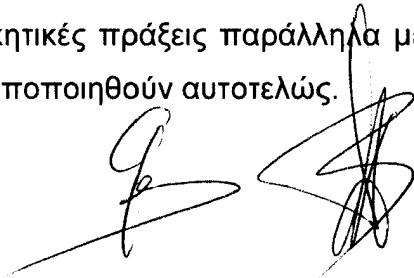 κητικές πράξεις παράλληλα με
ποποιηθούν αυτοτελώς.